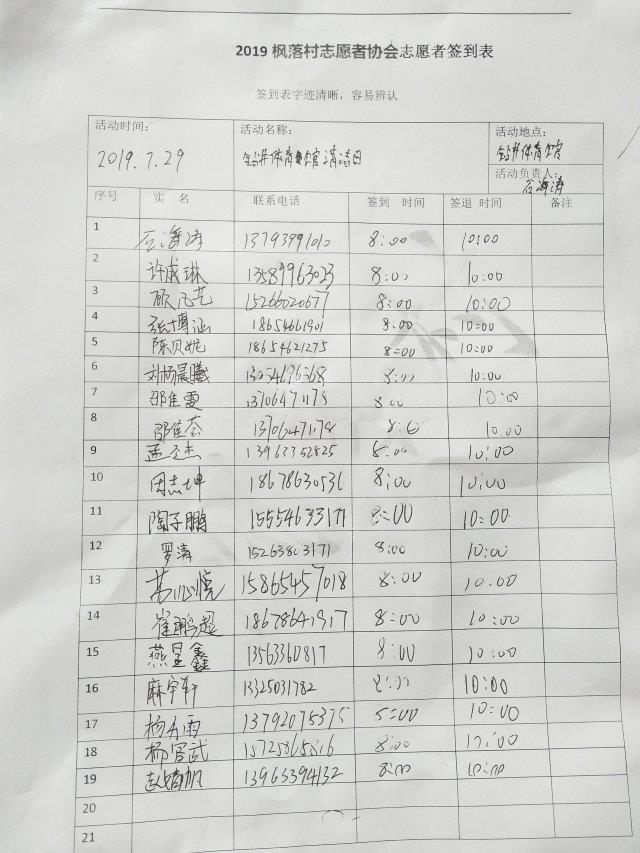 2019 枫落村志愿者协会志愿者签到表
签到表字迹清晰，容易辨认
活动时间： 活动名称： 活动地点：
2019.7.29 体育馆清洁日 体育馆
活动负责人：
石海涛
序号 实 名 联系电话 签到 时间 签退 时间 备注
1 石海涛 13793991010 8:00 10:00
2 许成琳 13589963023 8:00 10:00
3 15266020677 8:00 10:00
4 张博涵 18654661901 8:00 10:00
5 陈贝妮 18654621275 8:00 10:00
6 刘杨晨曦 13054696368 8:00 10:00
7 邵佳雯 13706471178 8:00 10:00
8 邵佳荟 13706471178 10:00
9 孟圣杰 13963352825 10:00
10 周志坤 18678630536 8:00 10:00
11 陶子鹏 15554633171 8:00 10:00
12 罗涛 15263803171 8:00 10:00
13 15865457018 8:00 10:00
14 崔鹏超 18678641917 8:00 10:00
15 燕昱鑫 13563360817 8:00 10:00
16 麻宇轩 13325031782 8:00 10:00
17 13792075375 10:00
18 杨冨武 15725865816 8:00
19 赵婧帆 13963394132 8:00 10:00
20
21